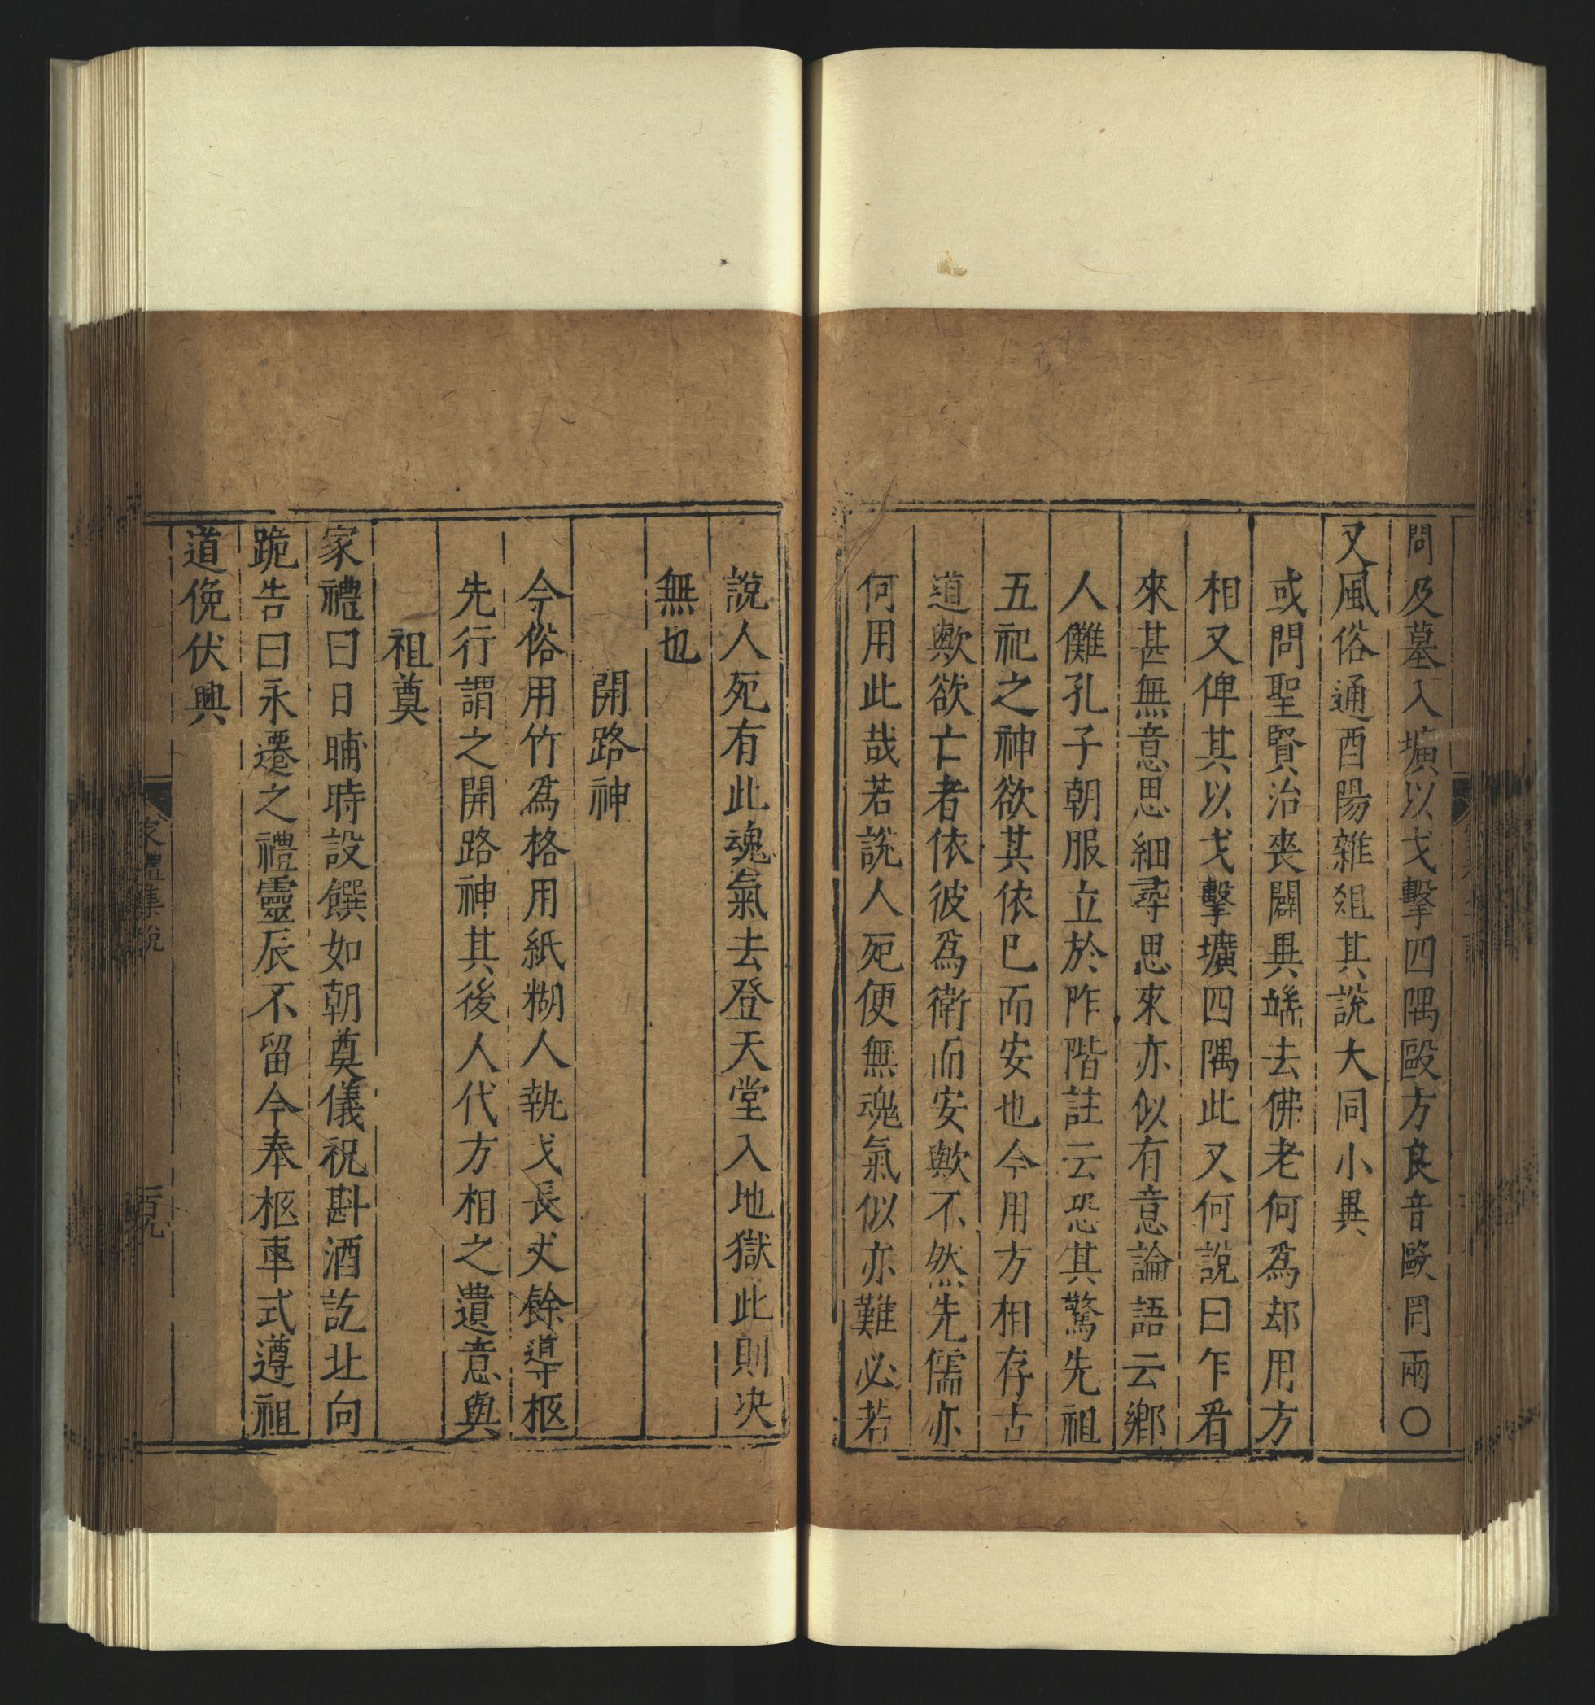 問及墓入壙以戈擊四隅毆方良音歐罔兩〇
又風俗通酉陽雜爼其說大同小異
或問聖賢治喪闢異端去佛老何爲却用方
相又俾其以戈擊壙四隅此又何說曰乍看
來甚無意思細尋思來亦似有意論語云鄉
人儺孔子朝服立於阼階註云恐其驚先祖
五祀之神欲其依已而安也今用方相存古
道歟欲亡者依彼爲衛而安歟不然先儒亦
何用此哉若說人死便無魂氣似亦難必若
說人死有此魂氣去登天堂入地獄此則决
無也
開路神
今俗用竹爲格用紙糊人執戈長丈餘導柩
先行謂之開路神其後人代方相之遺意與
祖奠
家禮曰日晡時設饌如朝奠儀祝斟酒訖北向
跪告曰永遷之禮靈辰不留今奉柩車式遵祖
道俛伏興
家禮集說